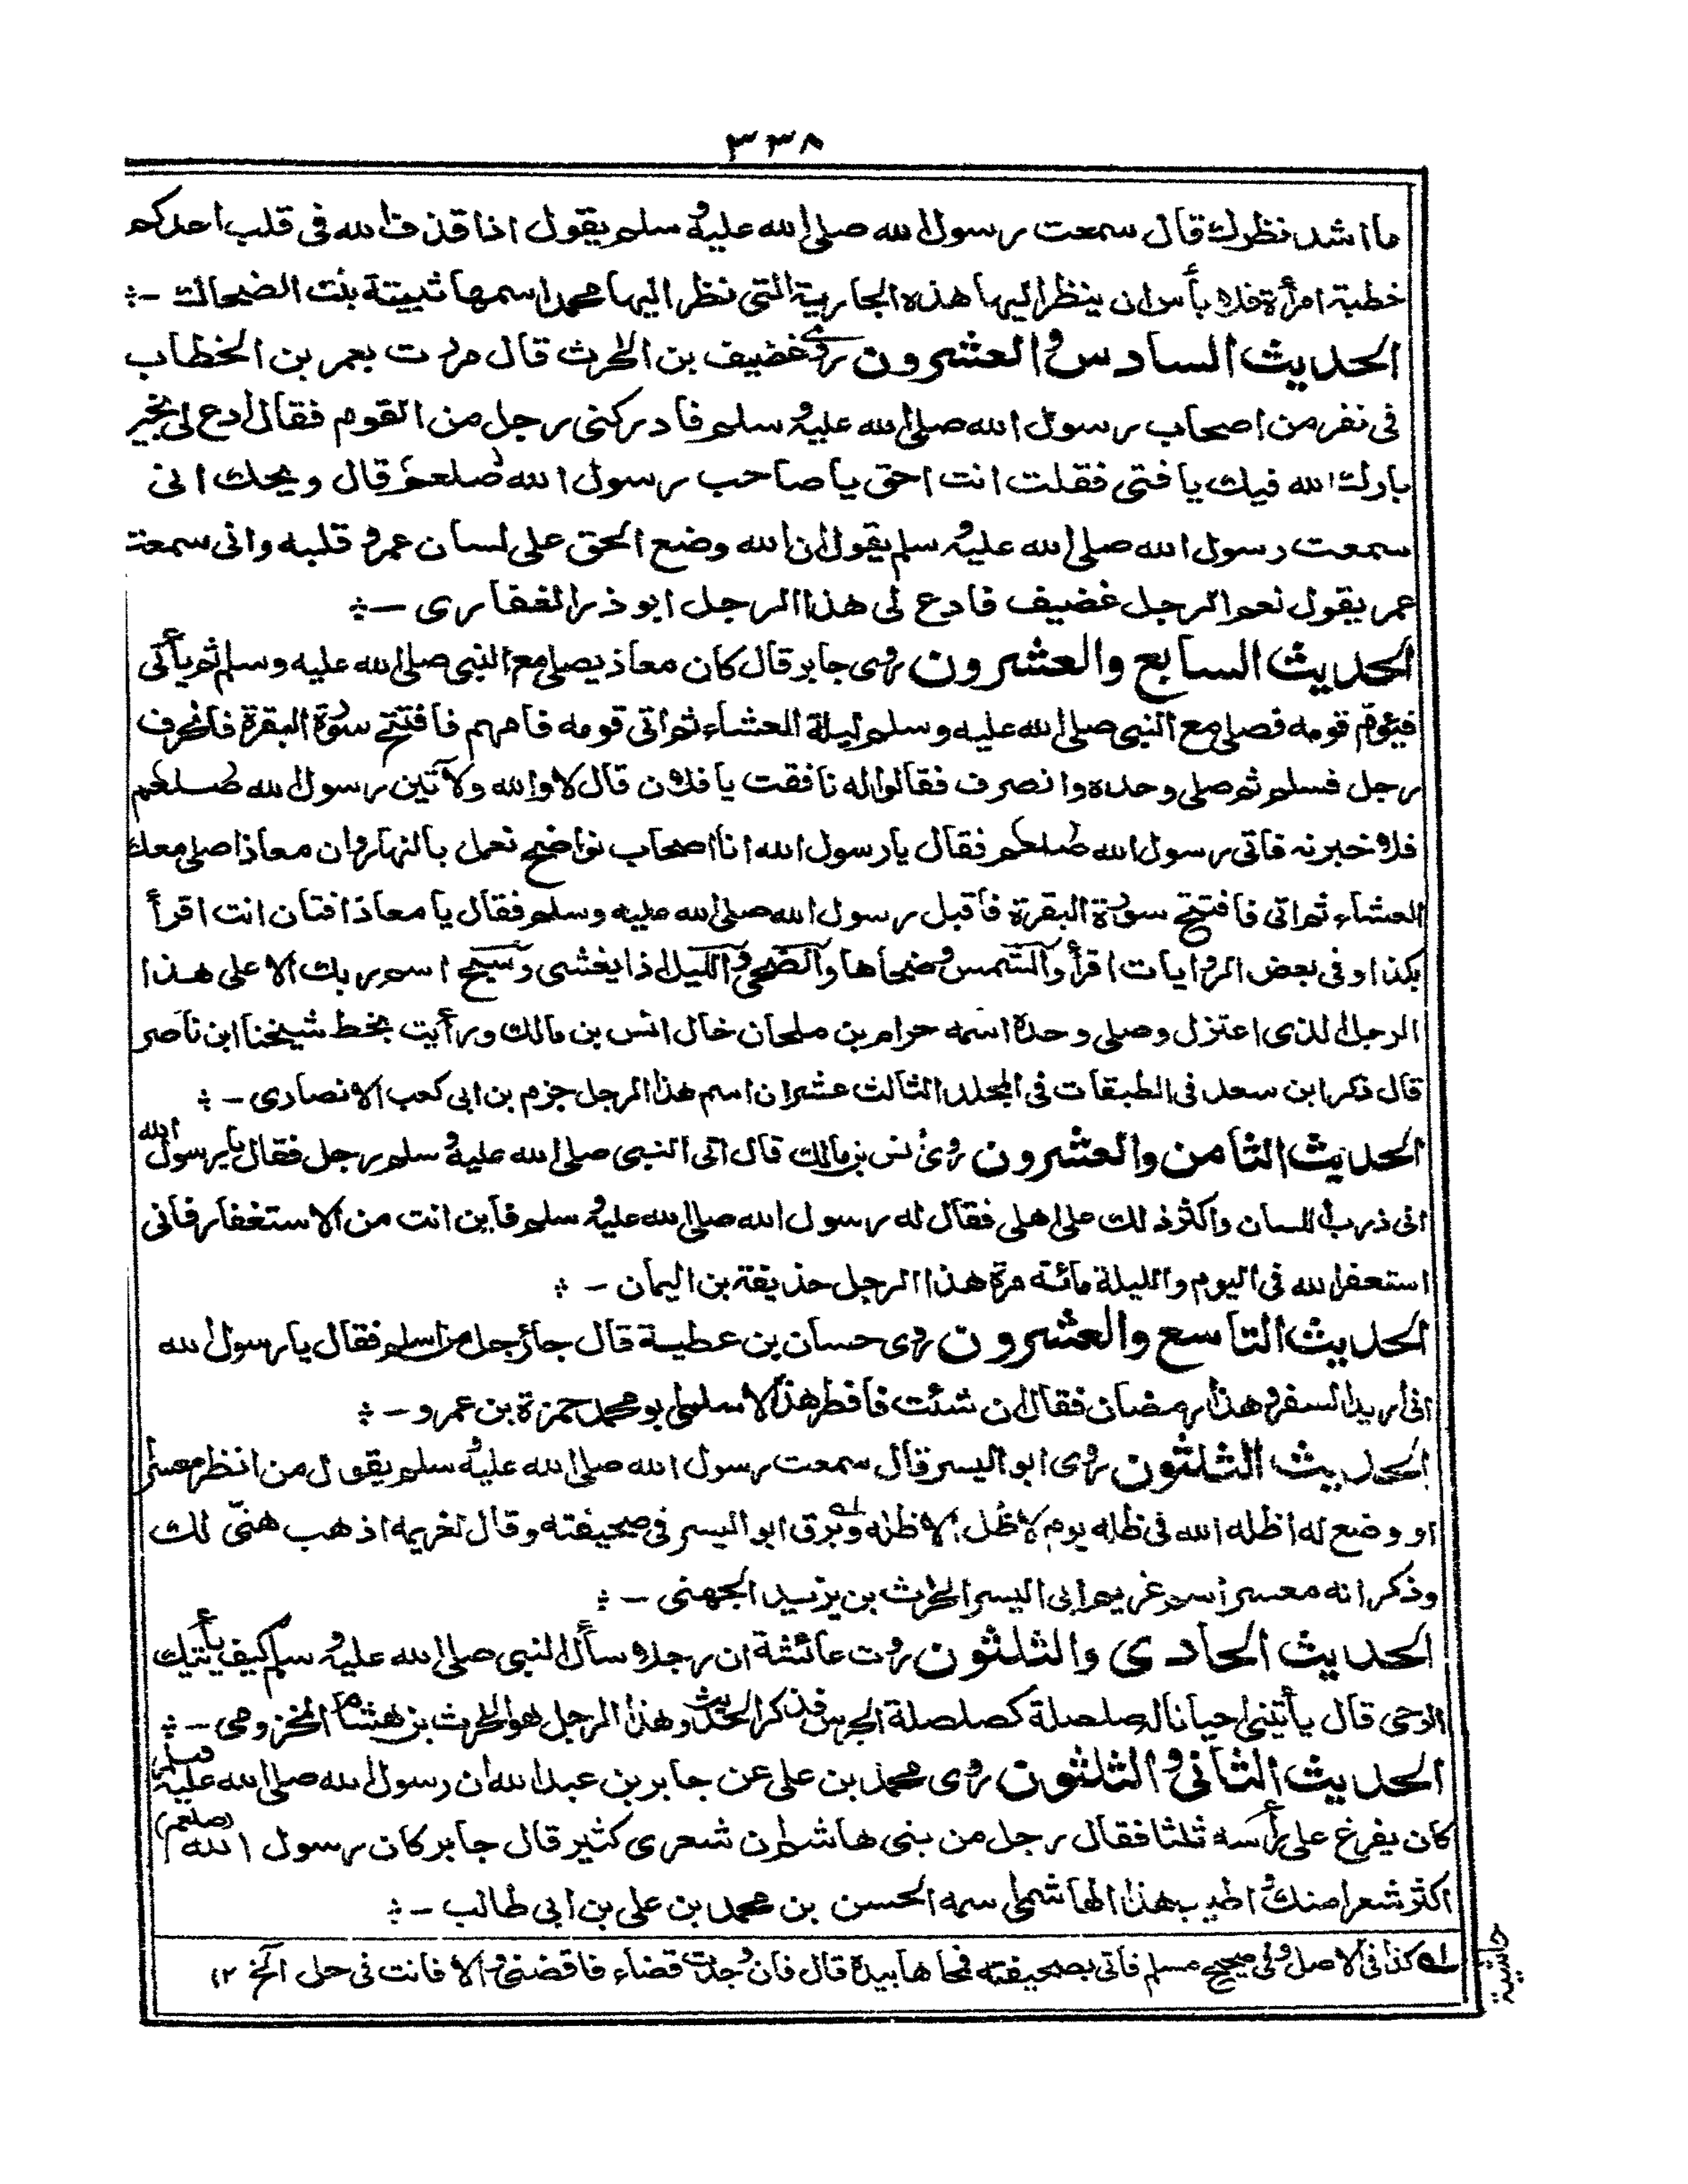 ٣٣٨
ما اشد نظرك قال سمعت رسول الله صلى الله عليه و سلم يقول اذا قذف الله فى قلب احدكم
خطبة امرأة فلا بأس ان ينظر اليها هذه الجارية التى نظر اليها محمد اسمها ثبيتة بنت الضحاك -
الحديث السادس و العشرون روى غضيف بن الحرث قال مررت بعمر بن الخطاب
فى نفر من اصحاب رسول الله صلى الله عليه و سلم فادركنى رجل من القوم فقال ادع لى بخير
بارك الله فيك يا فتى فقلت انت احق يا صاحب رسول الله صلعم قال ويحك انى
سمعت رسول الله صلى الله عليه و سلم يقول ان الله وضع الحق على لسان عمر و قلبه وانى سمعت
عمر يقول نعم الرجل غضيف فادع لى هذا الرجل ابو ذر الغفارى -
الحديث السابع والعشرون روى جابر قال كان معاذ يصلى مع النبى صلى الله عليه وسلم ثم يأتى
فيؤمّ قومه فصلى مع النبى صلى الله عليه وسلم ليلة العشاء ثم اتى قومه فامهم فافتتح سورة البقرة فانحرف
رجل فسلم ثم صلى وحده وانصرف فقالوا له نافقت يا فلان قال لا والله ولآتين رسول الله صلعم
فلاخبرنه فاتى رسول الله صلعم فقال يا رسول الله انا اصحاب نواضح نعمل بالنهار وان معاذا صلى معك
العشاء ثم اتى فافتتح سورة البقرة فاقبل رسول الله صلى الله عليه وسلم فقال يا معاذ افتان انت اقرأ
بكذا وفى بعض الروايات اقرأ والشمس و ضحاها والضحى و الليل اذا يغشى وسبح اسم ربك الاعلى هذا
الرجل الذى اعتزل وصلى وحده اسمه حرام بن ملحان خال انس بن مالك ورأيت بخط شيخنا ابن ناصر
قال ذكر ابن سعد فى الطبقات فى المجلد الثالث عشر ان اسم هذا الرجل حزم بن ابى كعب الانصارى -
الحديث الثامن والعشرون روى انس بن مالك قال اتى النبى صلى الله عليه و سلم رجل فقال يا رسول الله
انى ذرب اللسان واكثر ذلك على اهلى فقال له رسول الله صلى الله عليه و سلم فاين انت من الاستغفار فانى
استغفر الله فى اليوم والليلة مائة مرة هذا الرجل حذيفة بن اليمان -
الحديث التاسع والعشرون روى حسان بن عطية قال جاء رجل من اسلم فقال يا رسول الله
انى اريد السفر و هذا رمضان فقال ان شئت فافطر هذا الاسلمى ابو محمد حمزة بن عمرو -
الحديث الثلثون روى ابو اليسر قال سمعت رسول الله صلى الله عليه و سلم يقول من انظر معسرا
او وضع له اظله الله فى ظله يوم لا ظل الا ظله وبرق له ابو اليسر فى صحيفته وقال لغريمه اذهب هنىّ لك
وذكر انه معسر اسم غريم ابى اليسر الحرث بن يزيد الجهنى -
الحديث الحادى والثلثون روت عائشة ان رجلا سأل النبى صلى الله عليه و سلم كيف يأتيك
الوحى قال يأتينى احيانا له صلصلة كصلصلة الجرس فذكر الحديث وهذا الرجل هو الحرث بن هشام المخزومى -
الحديث الثانى و الثلثون روى محمد بن على عن جابر بن عبد الله ان رسول الله صلى الله عليه و سلم
كان يفرغ على رأسه ثلثا فقال رجل من بنى هاشم ان شعرى كثير قال جابر كان رسول الله (صلعم)
اكثر شعرا منك و اطيب هذا الهاشمى اسمه الحسن بن محمد بن على بن ابى طالب -
له كذا فى الاصل و فى صحيح مسلم فاتى بصحيفته فمحاها بيده قال فان وجدت قضاء فاقضنى و الا فانت فى حل الخ ١٢
حاشية